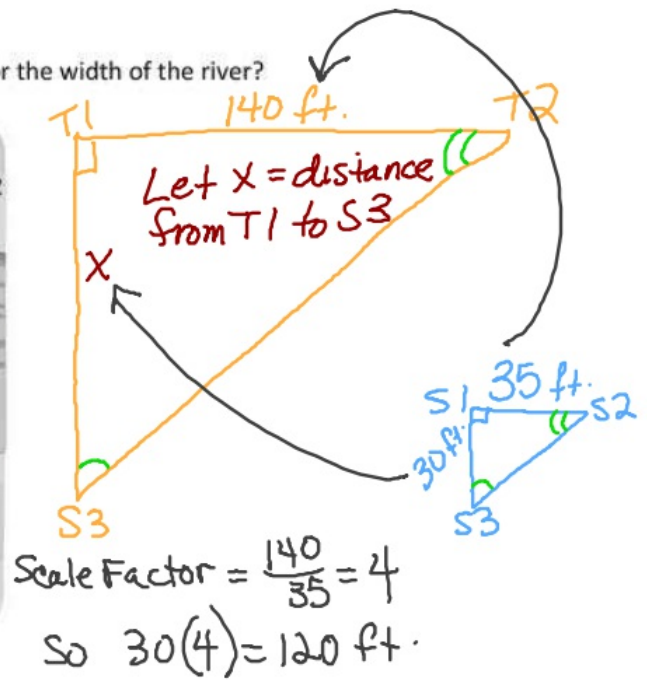 r the width of the river?
T1 140 ft. T2
Let X = distance
from T1 to S3
X
S1 35 ft. S2
30 ft.
S3
S3
Scale Factor = 140/35 = 4
So 30(4) = 120 ft.